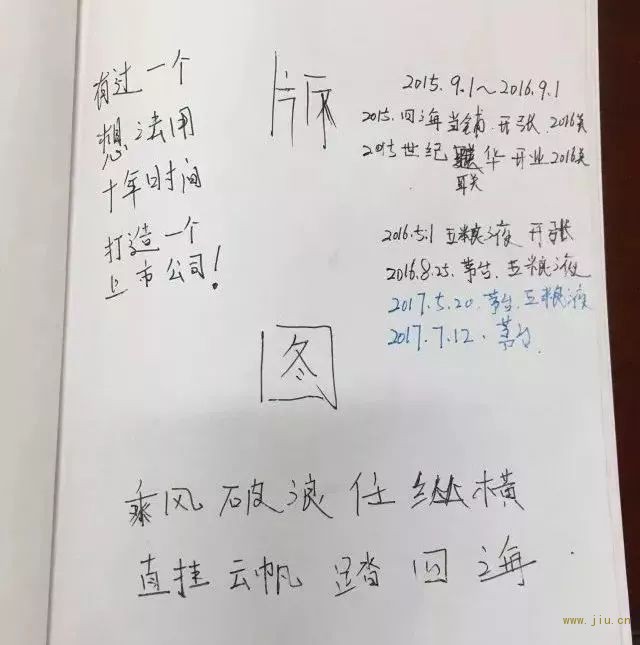 有过一个
想法用
十年时间
打造一个
上市公司!
版
2015.9.1～2016.9.1
2015.四海当铺.开张.2016关
2015世纪 华开业2016关
联
2016.5.1 五粮液 开张
2016.8.25.茅台.五粮液
2017.5.20.茅台.五粮液
2017.7.12.茅台.
图
乘风破浪任纵横
直挂云帆踏四海.
www.jiu.cn